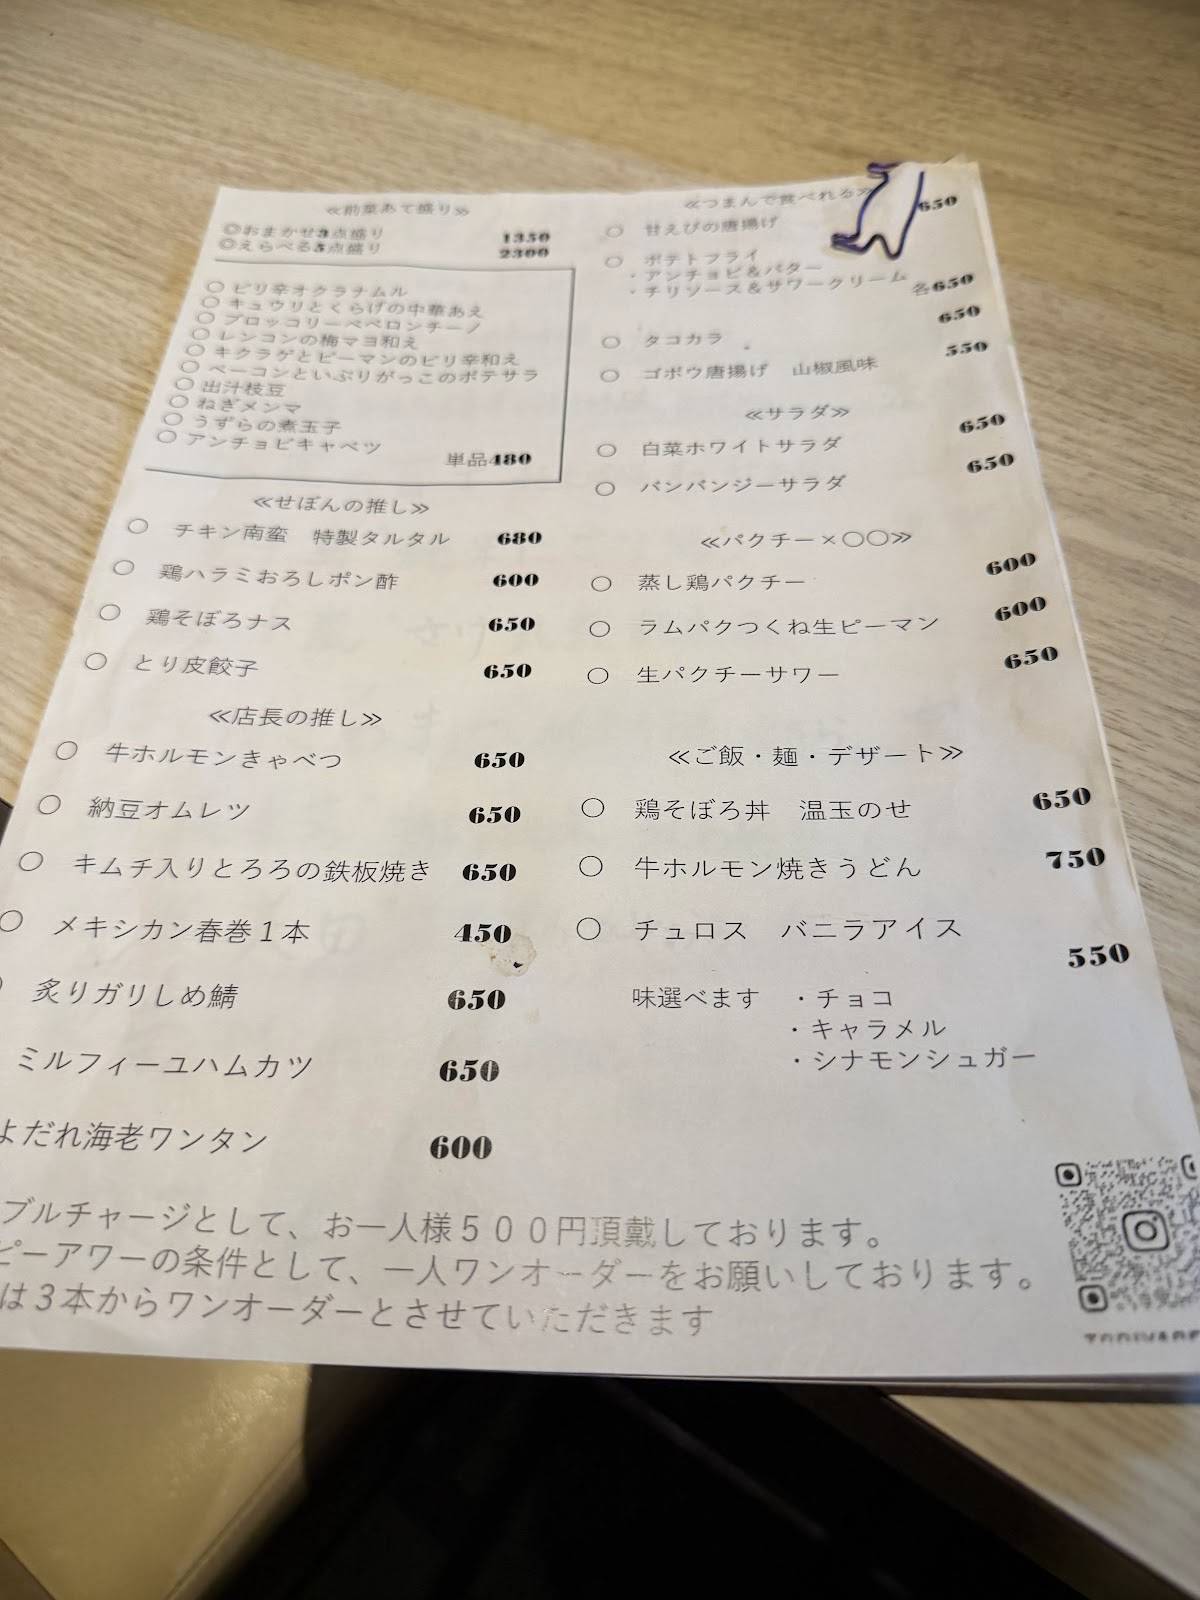 ≪前菜あて盛り≫
◎おまかせ3点盛り 1350
◎えらべる5点盛り 2300
○ ピリ辛オクラナムル
○ キュウリとくらげの中華あえ
○ ブロッコリーペペロンチーノ
○ レンコンの梅マヨ和え
○ キクラゲとピーマンのピリ辛和え
○ ベーコンといぶりがっこのポテサラ
○ 出汁枝豆
○ ねぎメンマ
○ うずらの煮玉子
○ アンチョビキャベツ
単品480
≪せぼんの推し≫
○ チキン南蛮 特製タルタル 680
○ 鶏ハラミおろしポン酢 600
○ 鶏そぼろナス 650
○ とり皮餃子 650
≪店長の推し≫
○ 牛ホルモンきゃべつ 650
○ 納豆オムレツ 650
○ キムチ入りとろろの鉄板焼き 650
○ メキシカン春巻１本 450
炙りガリしめ鯖 650
ミルフィーユハムカツ 650
よだれ海老ワンタン 600
≪つまんで食べれる≫
○ 甘えびの唐揚げ 650
○ ポテトフライ
・アンチョビ＆バター
・チリソース＆サワークリーム 各650
○ タコカラ 650
○ ゴボウ唐揚げ 山椒風味 550
≪サラダ≫
○ 白菜ホワイトサラダ 650
○ バンバンジーサラダ 650
≪パクチー×○○≫
○ 蒸し鶏パクチー 600
○ ラムパクつくね生ピーマン 600
○ 生パクチーサワー 650
≪ご飯・麺・デザート≫
○ 鶏そぼろ丼 温玉のせ 650
○ 牛ホルモン焼きうどん 750
○ チュロス バニラアイス 550
味選べます ・チョコ
・キャラメル
・シナモンシュガー
ブルチャージとして、お一人様５００円頂戴しております。
ピーアワーの条件として、一人ワンオーダーをお願いしております。
は３本からワンオーダーとさせていただきます